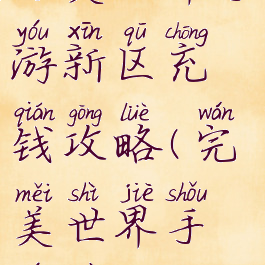 yóu xīn qū chōng
游新区充
qián gōng lüè wán
钱攻略(完
měi shì jiè shǒu
美世界手